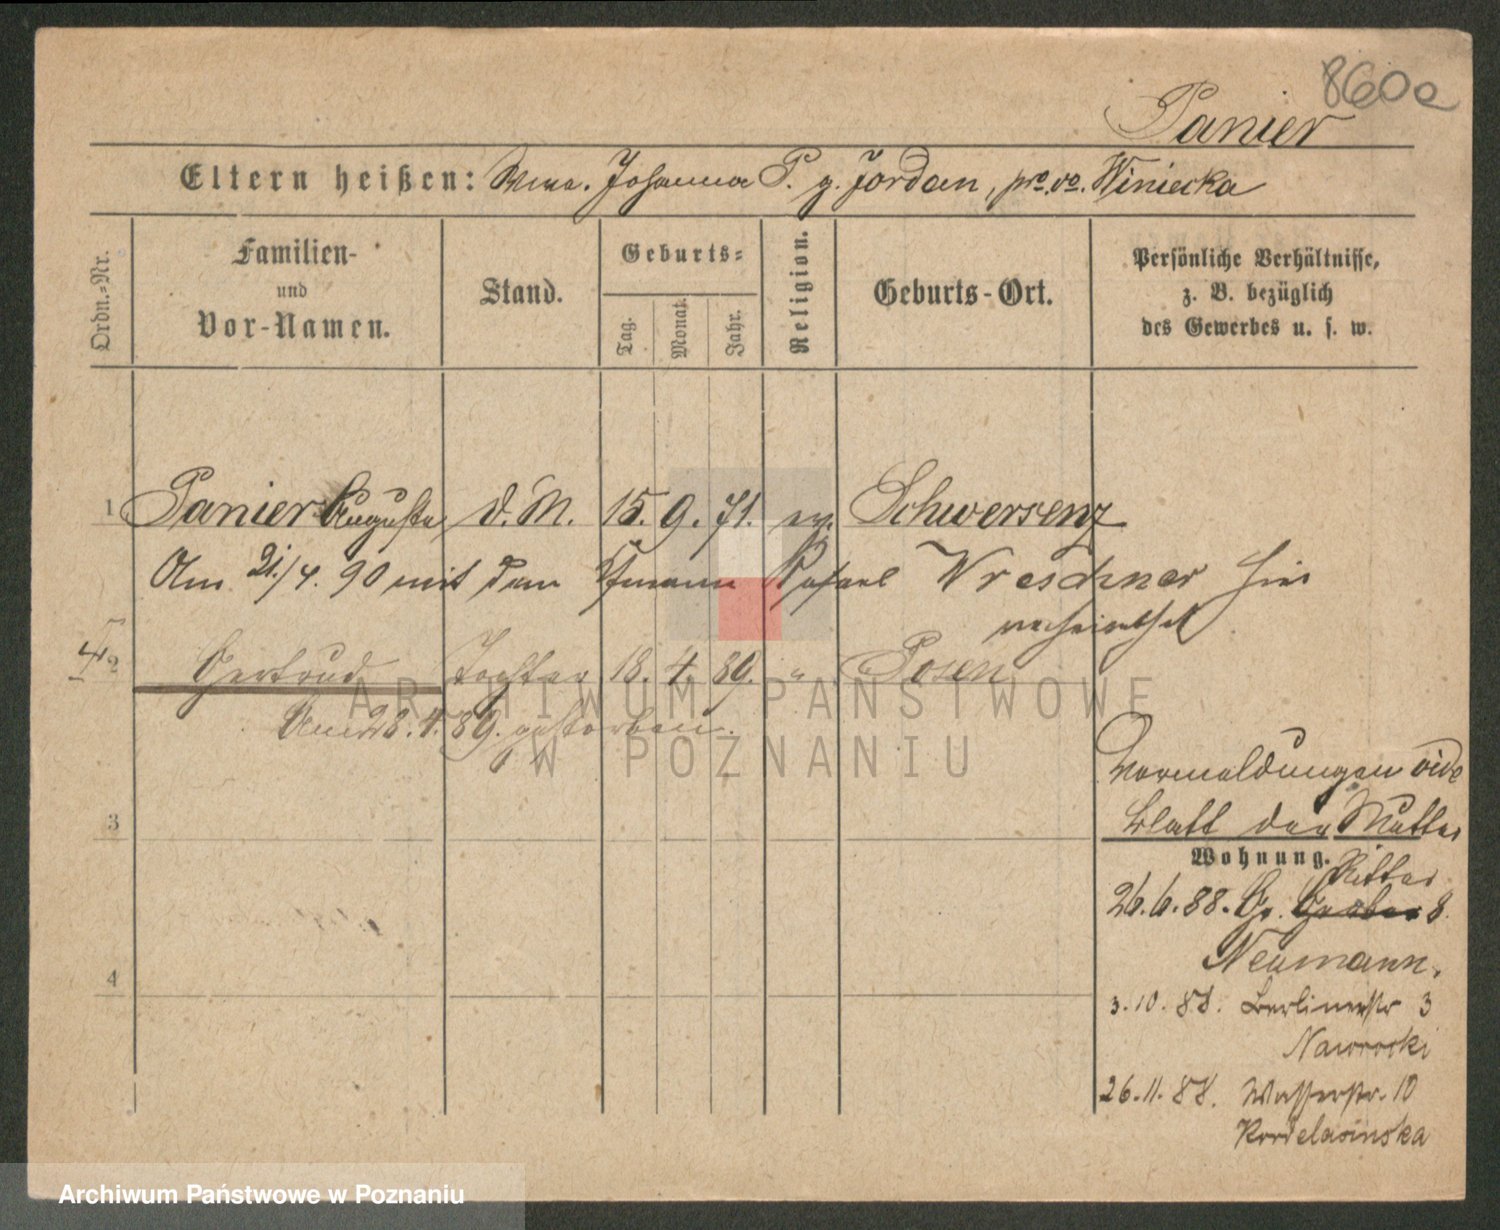 8609
Panier
Eltern heißen: Wwe. Johanna P. g. Jordan, pro. vo. Winiecka
Ordn.-Nr.
Familien-
und
Vor-Namen.
Stand.
Geburts-
Tag.
Monat.
Jahr.
Religion.
Geburts-Ort.
Persönliche Verhältnisse,
z. B. bezüglich
des Gewerbes u. s. w.
1 Panier Auguste d. M. 15. 9. 71. ev. Schwersenz
Am 21./4. 90 mit dem Rafael Wreschner hier
verheirathet
2 Gertrud Tochter 18. 4. 89. " Posen
Am 28. 4. 89. gestorben.
ARCHIWUM PAŃSTWOWE
W POZNANIU
Vormeldungen vide
Blatt der Mutter
3
Wohnung.
Ritter
26.6.88. Gr. Gerber 8.
Neumann.
4
3.10.88. Berlinerstr 3
Nawrocki
26.11.88. Wasserstr. 10
Kordelasinska
Archiwum Państwowe w Poznaniu